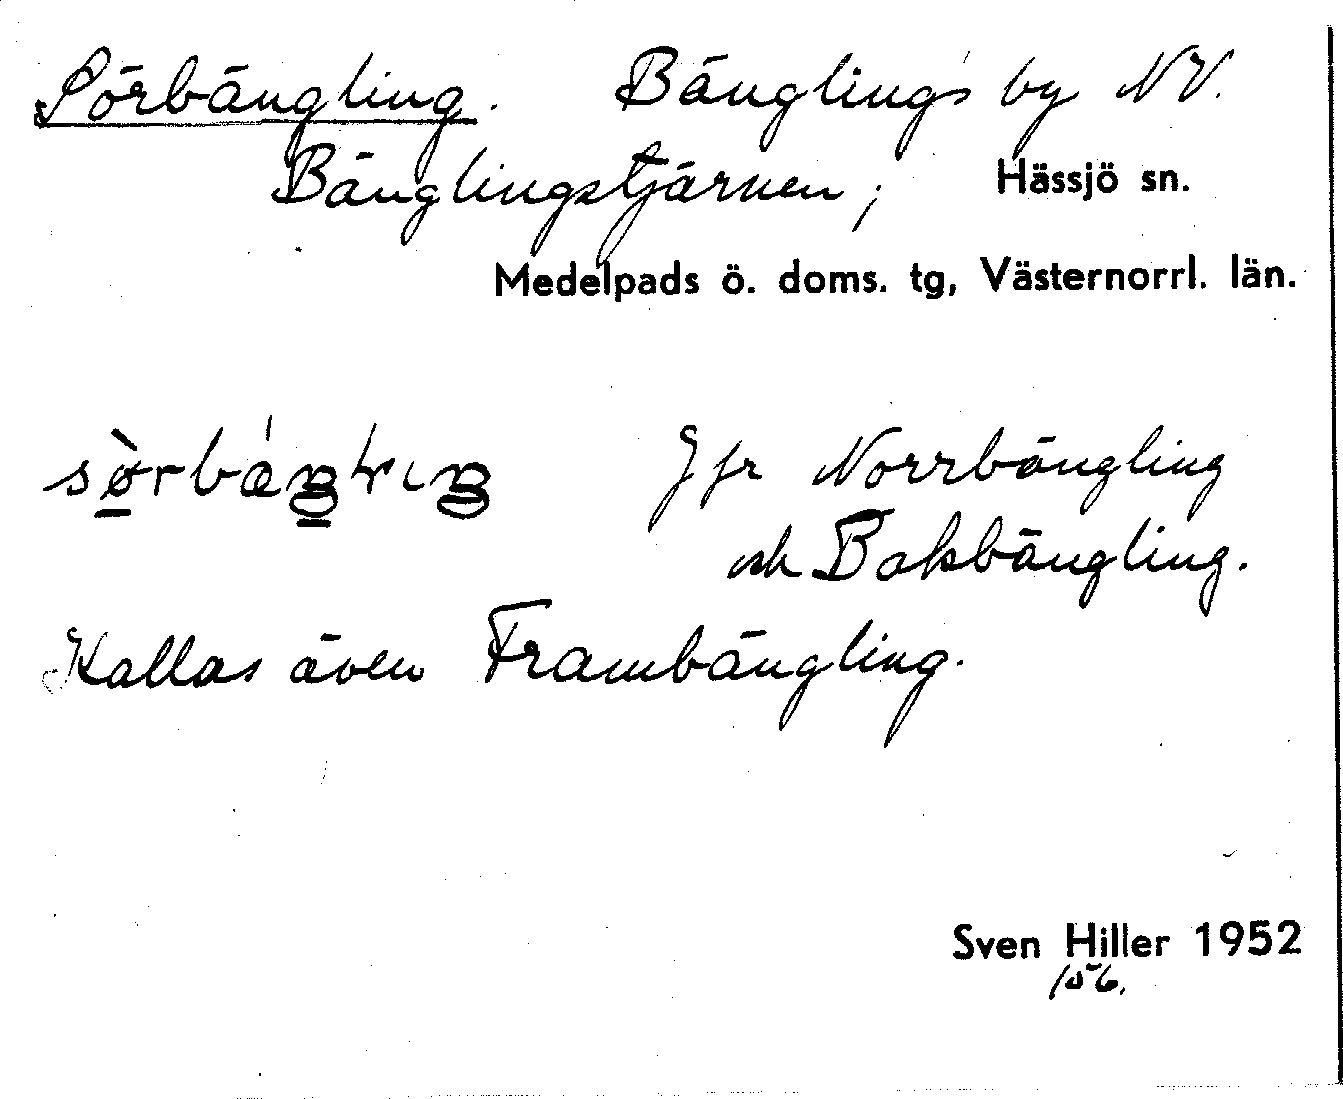 Sörbängling. Bänglings by NV.
Bänglingstjärnen; Hässjö sn.
Medelpads ö. doms. tg, Västernorrl. län.
Jfr Norrbängling
och Bakbängling.
Kallas även Frambängling.
Sven Hiller 1952
156.